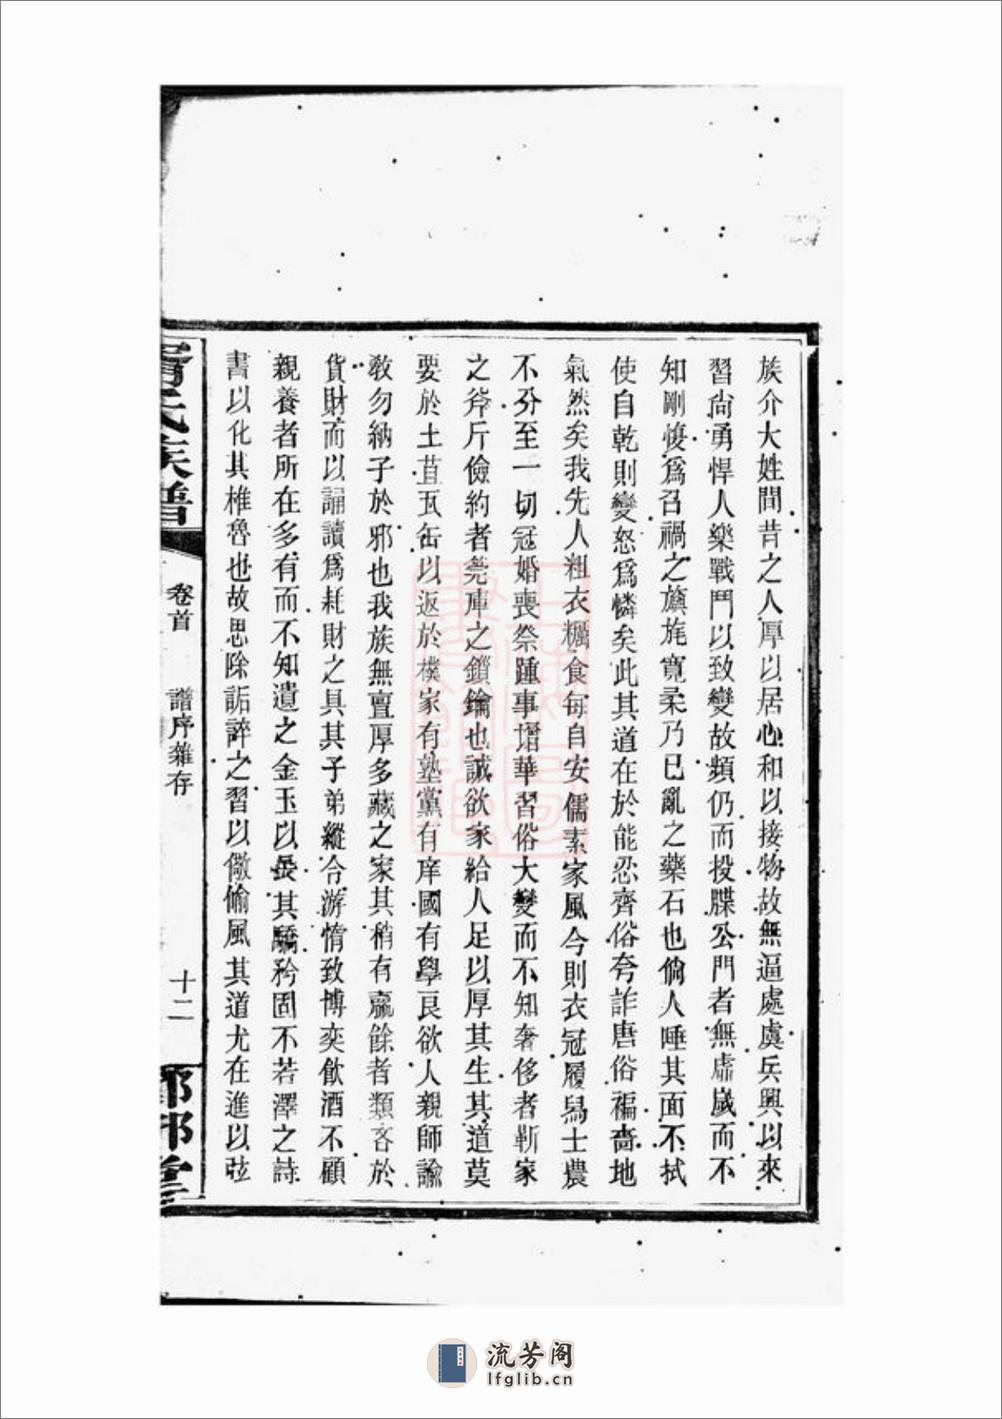 族介大姓間昔之人厚以居心和以接物故無逼處虞兵興以來
習尙勇悍人樂戰鬥以致變故頻仍而投牒公門者無虛嵗而不
知剛愎爲召禍之旗旄寬柔乃已亂之藥石也倘人唾其面不拭
使自乾則變怒爲憐矣此其道在於能忍齊俗夸詐唐俗褊嗇地
氣然矣我先人粗衣糲食每自安儒素家風今則衣冠履舄士農
不分至一切冠婚喪祭踵事增華習俗大變而不知奢侈者斬家
之斧斤儉約者莞庫之鎖鑰也誠欲家給人足以厚其生其道莫
要於土苴瓦缶以返於樸家有塾黨有庠國有學艮欲人親師諭
敎勿納子於邪也我族無亶厚多藏之家其稍有贏餘者類吝於
貨財而以誦讀爲耗財之具其子弟縱令游惰致博奕飮酒不顧
親養者所在多有而不知遺之金玉以長其驕矜固不若澤之詩
書以化其椎魯也故思除詬誶之習以儆偷風其道尤在進以弦
胥氏族譜 卷首 譜序雜存 十二
流芳阁
lfglib.cn